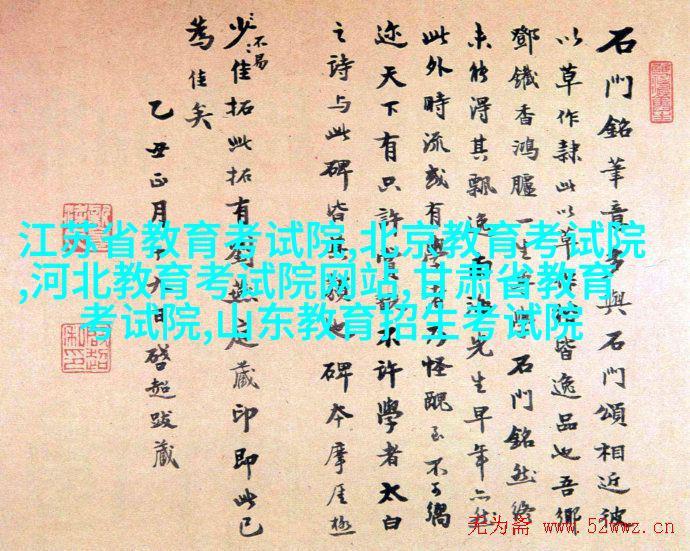 石門銘筆意多與石門頌相近彼
以草作隸此以草作皆逸品也吾鄉
鄧鐵香鴻臚一生學石門銘然終
未能得其飄逸南海先生早年亦然
此外時流或有學者乃怪醜至不可嚮
迩天下有只許賞玩不許學者太白
之詩與此碑皆其類也碑本摩厓極
少佳拓此拓有劉燕庭藏印即此已
不易
為佳矣
乙丑正月十九日啓超跋藏
江苏省教育考试院,北京教育考试院
,河北教育考试院网站,甘肃省教育
考试院,山东教育招生考试院
无为斋 www.52wwz.cn